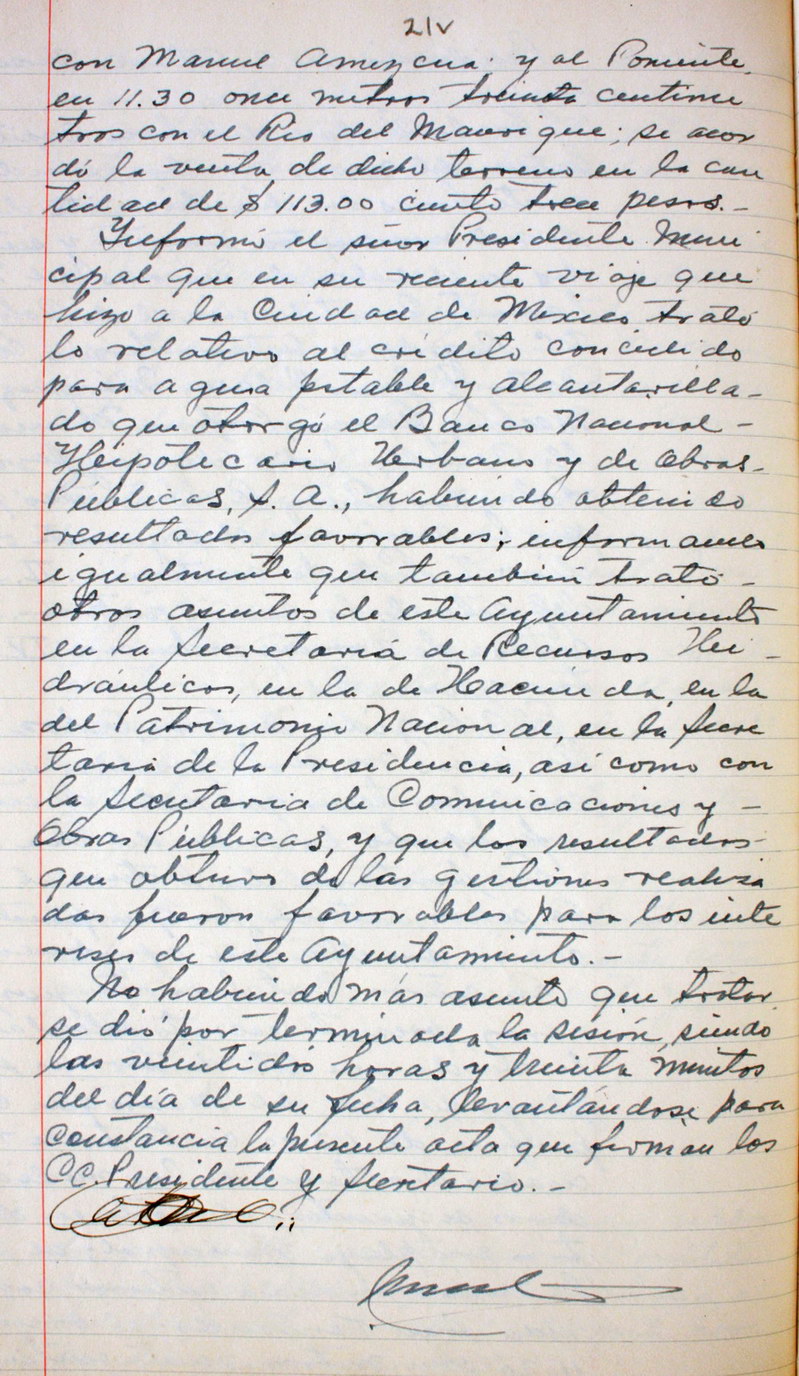 21v
con Manuel Amezcua; y al Poniente,
en 11.30 once metros treinta centime
tros con el Rio del Manrique; se acor
dó la venta de dicho terreno en la can
tidad de $ 113.00 ciento trece pesos.-
Informó el señor Presidente Muni
cipal que en su reciente viaje que
hizo a la Ciudad de México trató
lo relativo al crédito concedido
para agua potable y alcantarilla-
do que otorgó el Banco Nacional-
Hipotecario Urbano y de Obras
Públicas, S. A., habiendo obtenido
resultados favorables; informando
igualmente que también trató-
otros asuntos de este Ayuntamiento
en la Secretaría de Recursos Hi-
dráulicos, en la de Hacienda, en la
del Patrimonio Nacional, en la Secre
taría de la Presidencia, así como con
la Secretaria de Comunicaciones y -
Obras Públicas, y que los resultados
que obtuvo de las gestiones realiza
das fueron favorables para los inte
reses de este Ayuntamiento.-
No habiendo más asunto que tratar
se dió por terminada la sesión, siendo
las veintidós horas y treinta minutos
del día de su fecha, levantándose para
constancia la presente acta que firman los
CC. Presidente y Secretario.-